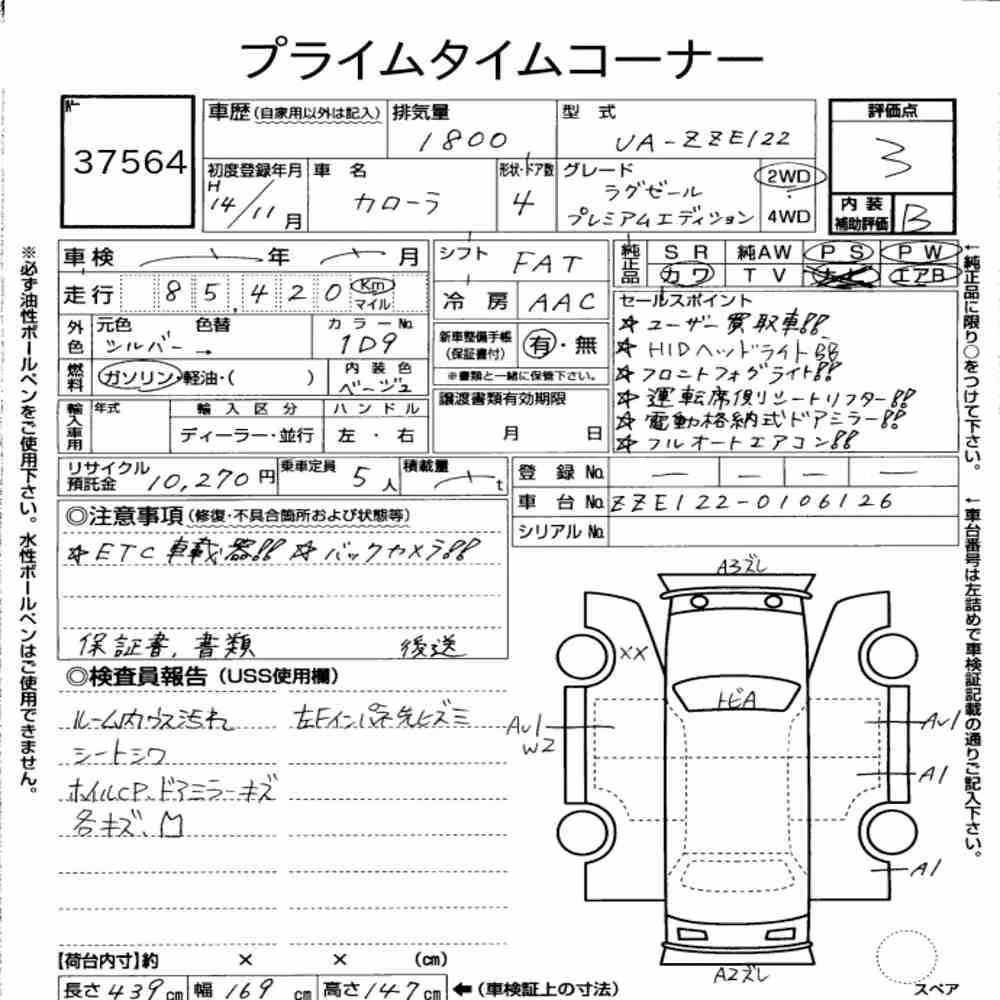 プライムタイムコーナー
№
37564
車歴(自家用以外は記入)
排気量
1800
型 式
UA-ZZE122
評価点
3
初度登録年月
H
14/11月
車 名
カローラ
形状・ドア数
4
グレード
ラグゼール
プレミアムエディション
2WD
4WD
内装
補助評価
B
車検 年 月
走行 85,420 Km
マイル
シフト
FAT
冷房
AAC
純正品
SR 純AW PS PW
カワ TV ナビ エアB
外色
元色 色替
シルバー →
カラーNo.
1D9
燃料
ガソリン・軽油・( )
内装色
ベージュ
新車整備手帳
(保証書付)
有・無
※書類と一緒に保管下さい。
セールスポイント
☆ユーザー買取車!!
☆HIDヘッドライト!!
☆フロントフォグライト!!
☆運転席側リシートリフター!!
☆電動格納式ドアミラー!!
☆フルオートエアコン!!
輸入車用
年式
輸入区分
ディーラー・並行
ハンドル
左・右
譲渡書類有効期限
月 日
リサイクル
預託金
10,270円
乗車定員
5人
積載量
t
登録No.
車台No. ZZE122-0106126
シリアルNo.
◎注意事項(修復・不具合箇所および状態等)
☆ETC車載器!! ☆バックカメラ!!
保証書、書類 後送
◎検査員報告(USS使用欄)
ルーム内ウス汚れ 左Fインパネ先ヒズミ
シートシワ
ホイルCP、ドアミラーキズ
各キズ、凹
A3ズレ
XX
トビA
AU1
W2
AU1
A1
A1
A2ズレ
スペア
【荷台内寸】約 × × (cm)
長さ439cm 幅169cm 高さ147cm ←(車検証上の寸法)
※必ず油性ボールペンをご使用下さい。水性ボールペンはご使用できません。
←純正品に限り○をつけて下さい。
←車台番号は左詰めで車検証記載の通りご記入下さい。